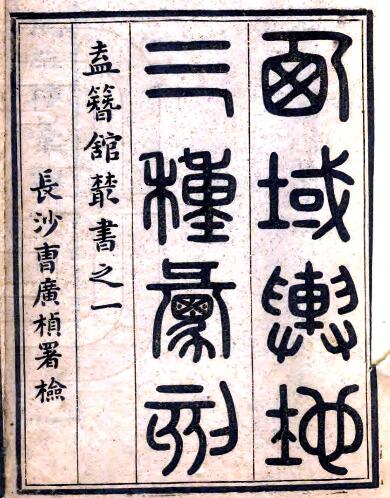 西域輿地
三種彙刻
盍簪館叢書之一
長沙曹廣楨署檢